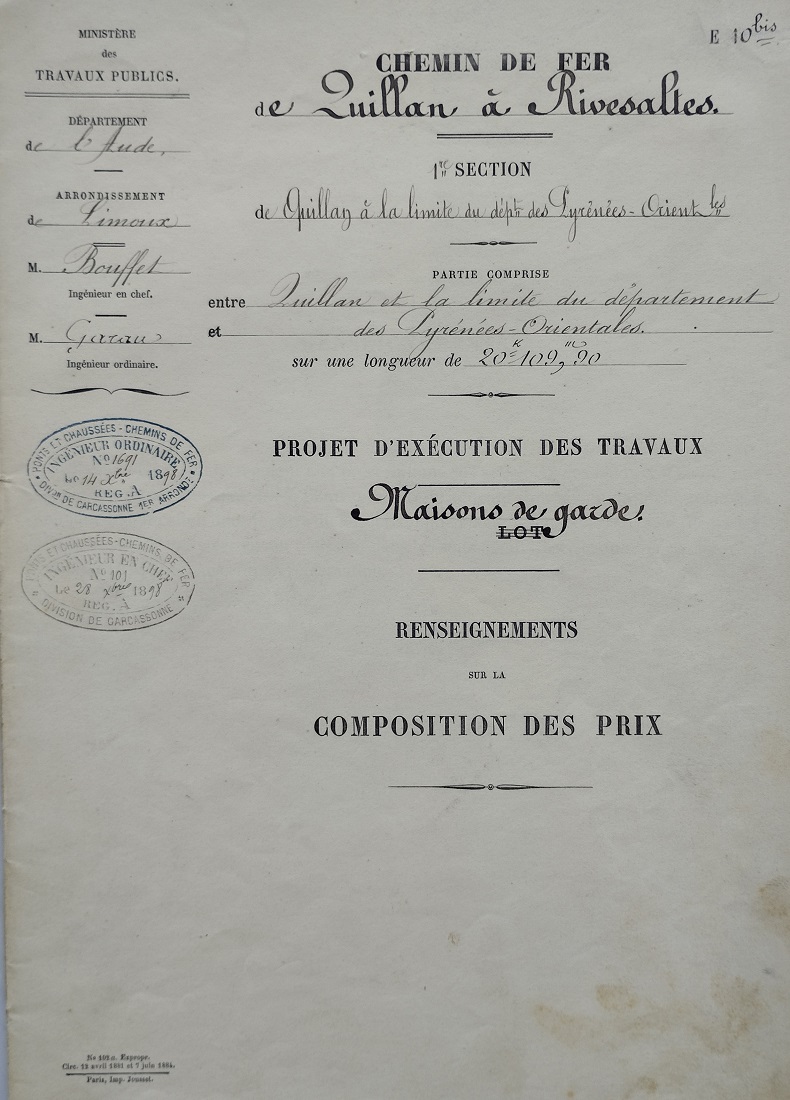 E 10 bis
MINISTÈRE
des
TRAVAUX PUBLICS.
DÉPARTEMENT
de l'Aude,
ARRONDISSEMENT
de Limoux
M. Bouffet
Ingénieur en chef.
M. Garau
Ingénieur ordinaire.
PONTS ET CHAUSSÉES - CHEMINS DE FER
INGÉNIEUR ORDINAIRE
No 1691
Le 14 Xbre 1898
REG. A
DIVon DE CARCASSONNE 1ER ARRONDt
PONTS ET CHAUSSÉES-CHEMINS DE FER
INGÉNIEUR EN CHEF
No 101
Le 28 Xbre 1898
REG. A
DIVISION DE CARCASSONNE
CHEMIN DE FER
de Quillan à Rivesaltes.
1re SECTION
de Quillan à la limite du dépt des Pyrénées-Orientles
PARTIE COMPRISE
entre Quillan et la limite du département
et des Pyrénées-Orientales.
sur une longueur de 20k109,m90
PROJET D'EXÉCUTION DES TRAVAUX
Maisons de garde.
LOT
RENSEIGNEMENTS
SUR LA
COMPOSITION DES PRIX
Circ. 12 avril 1881 et 7 juin 1884.
Paris, Imp. Jousset.